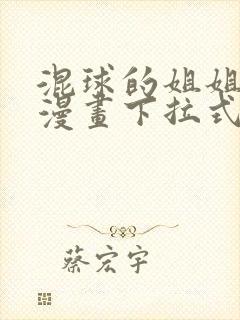 混球的姐姐
漫畫下拉式
蔡宏宇